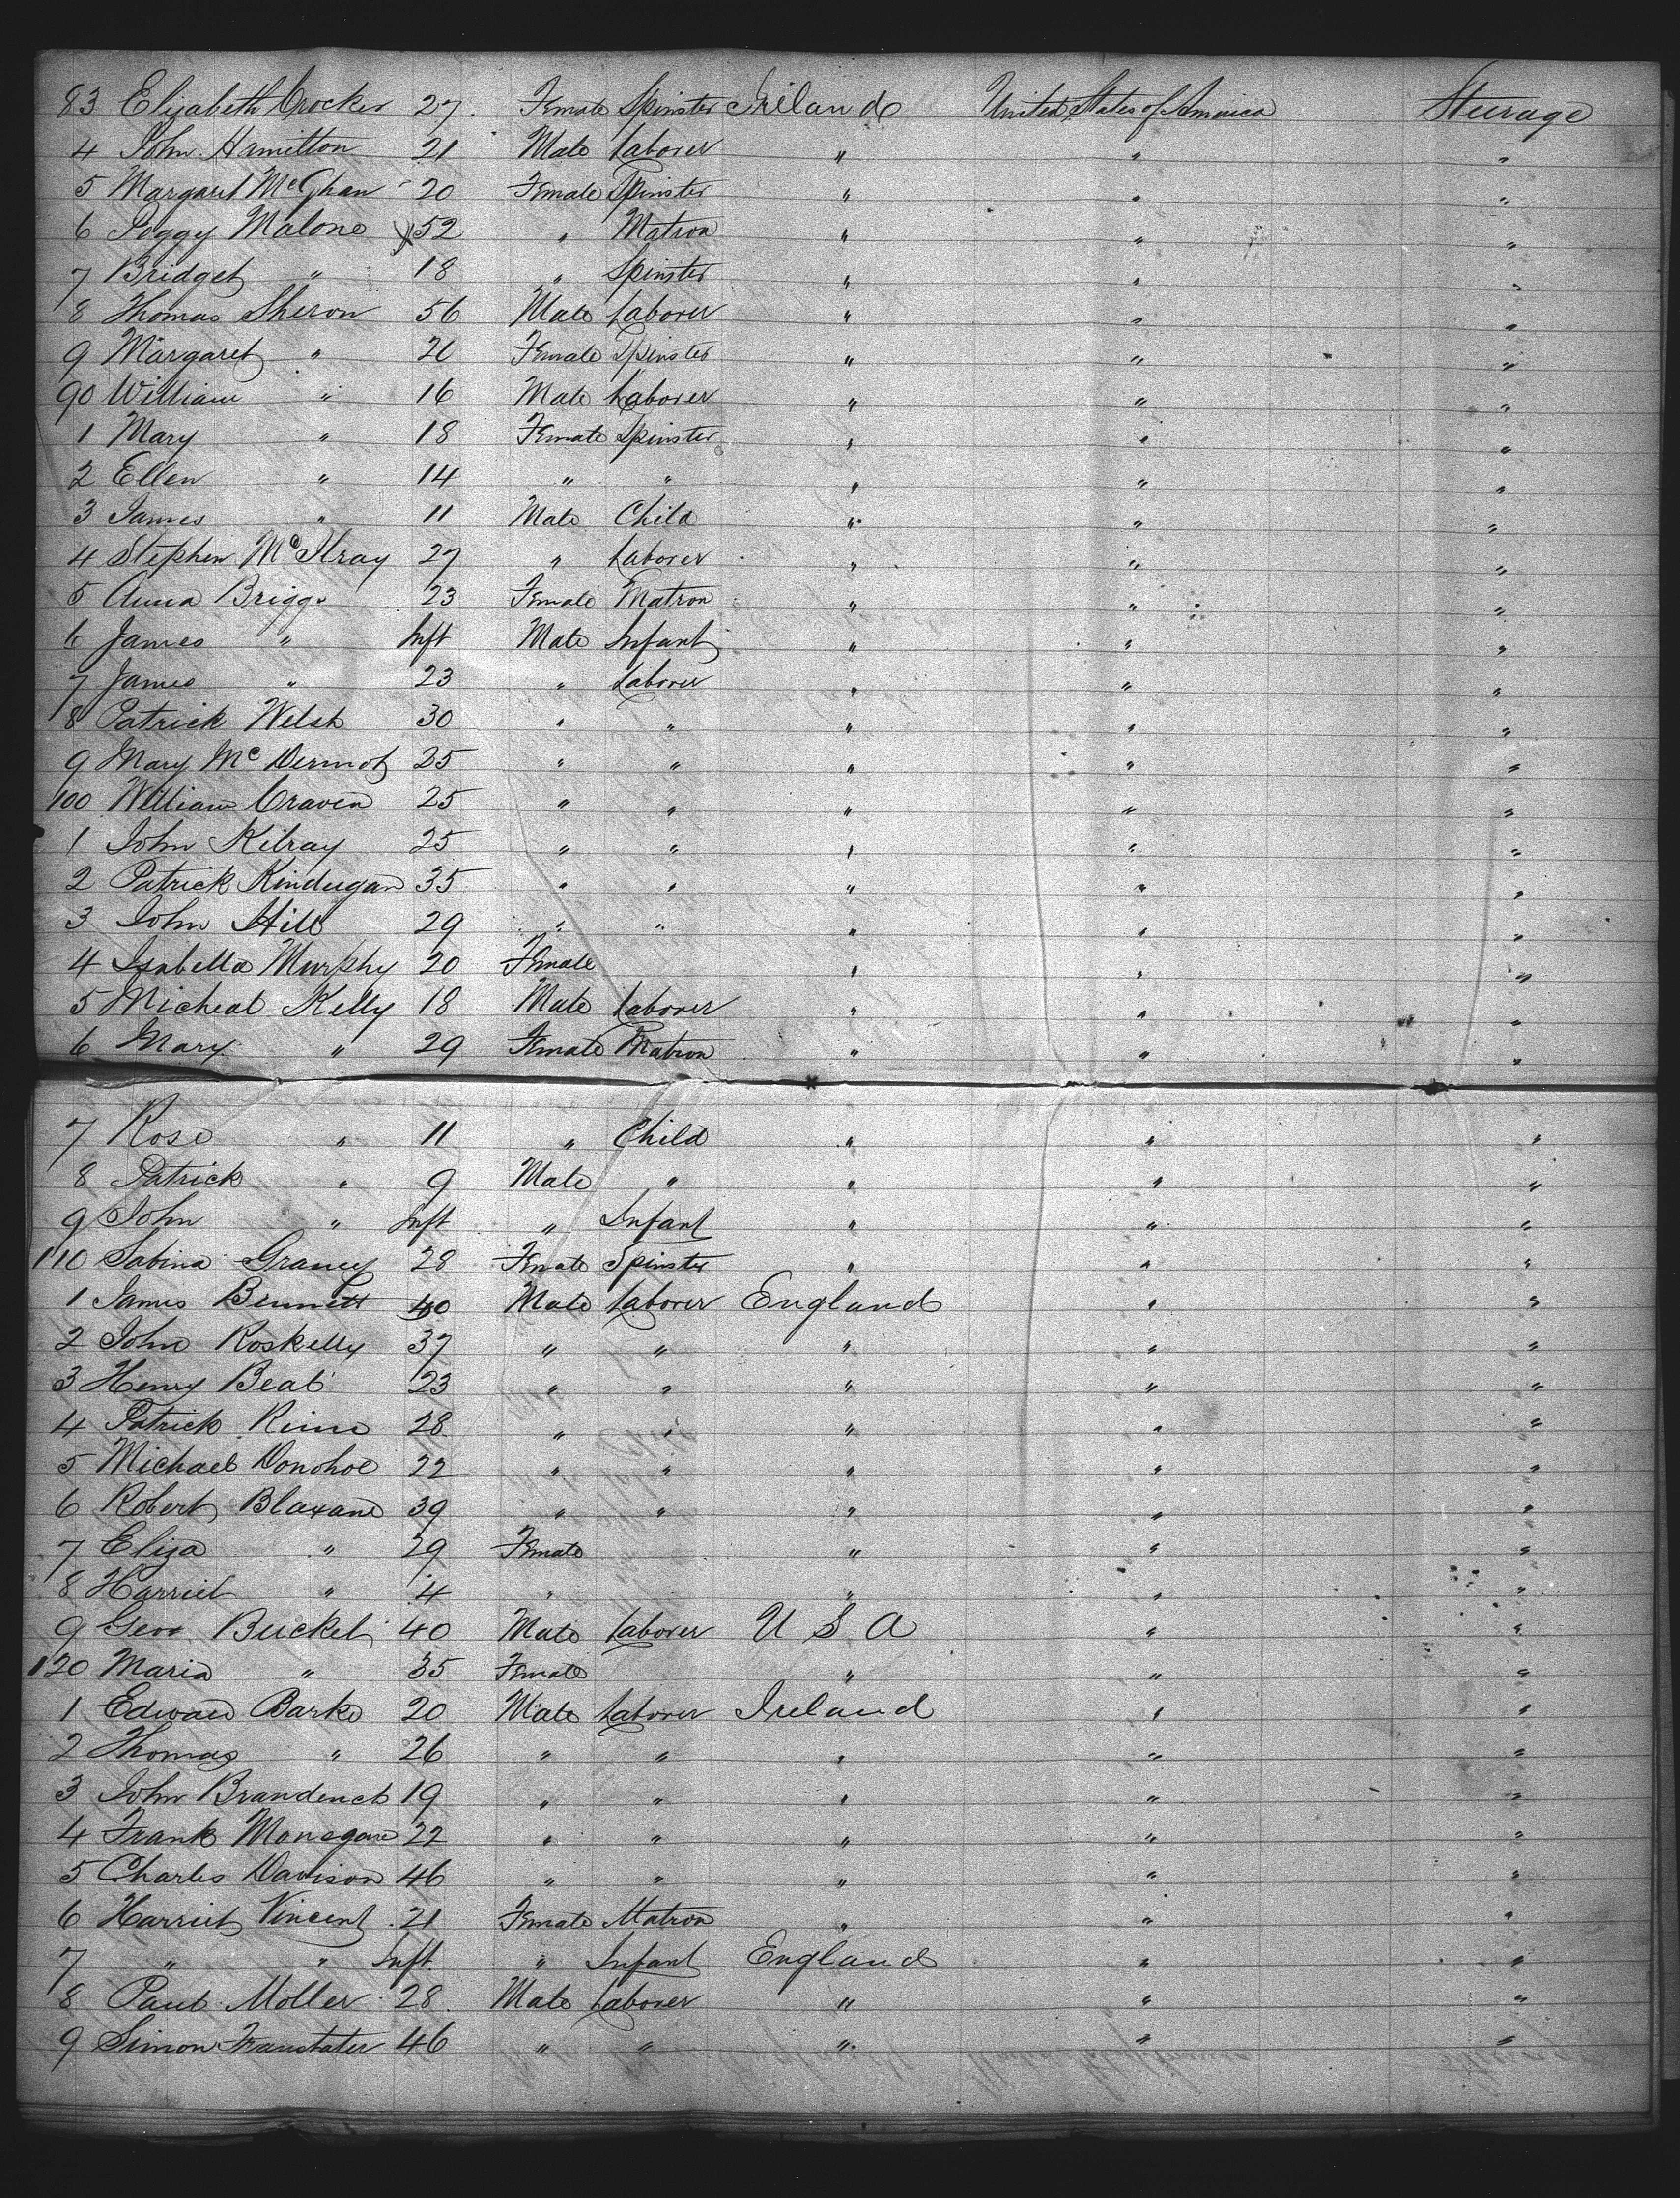 83 Elizabeth Crocker 27. Female Spinster Ireland United States of America Steerage
4 John Hamilton 21 Male Laborer " " "
5 Margaret McGhan 20 Female Spinster " " "
6 Peggy Malone 52 " Matron " " "
7 Bridget " 18 " Spinster " " "
8 Thomas Sheron 56 Male Laborer " " "
9 Margaret " 20 Female Spinster " " "
90 William " 16 Male Laborer " " "
1 Mary " 18 Female Spinster " " "
2 Ellen " 14 " " " " "
3 James " 11 Male Child " " "
4 Stephen McIlray 27 " Laborer " " "
5 Anna Briggs 23 Female Matron " " "
6 James " Inft Male Infant " " "
7 James " 23 " Laborer " " "
8 Patrick Welsh 30 " " " " "
9 Mary McDermot 25 " " " " "
100 William Craven 25 " " " " "
1 John Kilray 25 " " " " "
2 Patrick Kindugan 35 " " " " "
3 John Hill 29 " " " " "
4 Isabella Murphy 20 Female " " "
5 Micheal Kelly 18 Male Laborer " " "
6 Mary " 29 Female Matron " " "
7 Rose " 11 " Child " " "
8 Patrick " 9 Male " " " "
9 John " Inft " Infant " " "
110 Sabina Graney 28 Female Spinster " " "
1 James Bennett 40 Male Laborer England " "
2 John Roskelly 37 " " " " "
3 Henry Beal 23 " " " " "
4 Patrick 28 " " " " "
5 Michael Donohoe 22 " " " " "
6 Robert Blaxand 39 " " " " "
7 Eliza " 29 Female " " "
8 Harriet " 4 " " " "
9 Geo Buckel 40 Male Laborer U S A " "
120 Maria " 35 Female " " "
1 Edward Barke 20 Male Laborer Ireland " "
2 Thomas " 26 " " " " "
3 John 19 " " " " "
4 Frank Monegan 22 " " " " "
5 Charles Davison 46 " " " " "
6 Harriet Vincent 21 Female Matron " " "
7 " " Inft " Infant England " "
8 Paul Moller 28 Male Laborer " " "
9 Simon 46 " " " " "